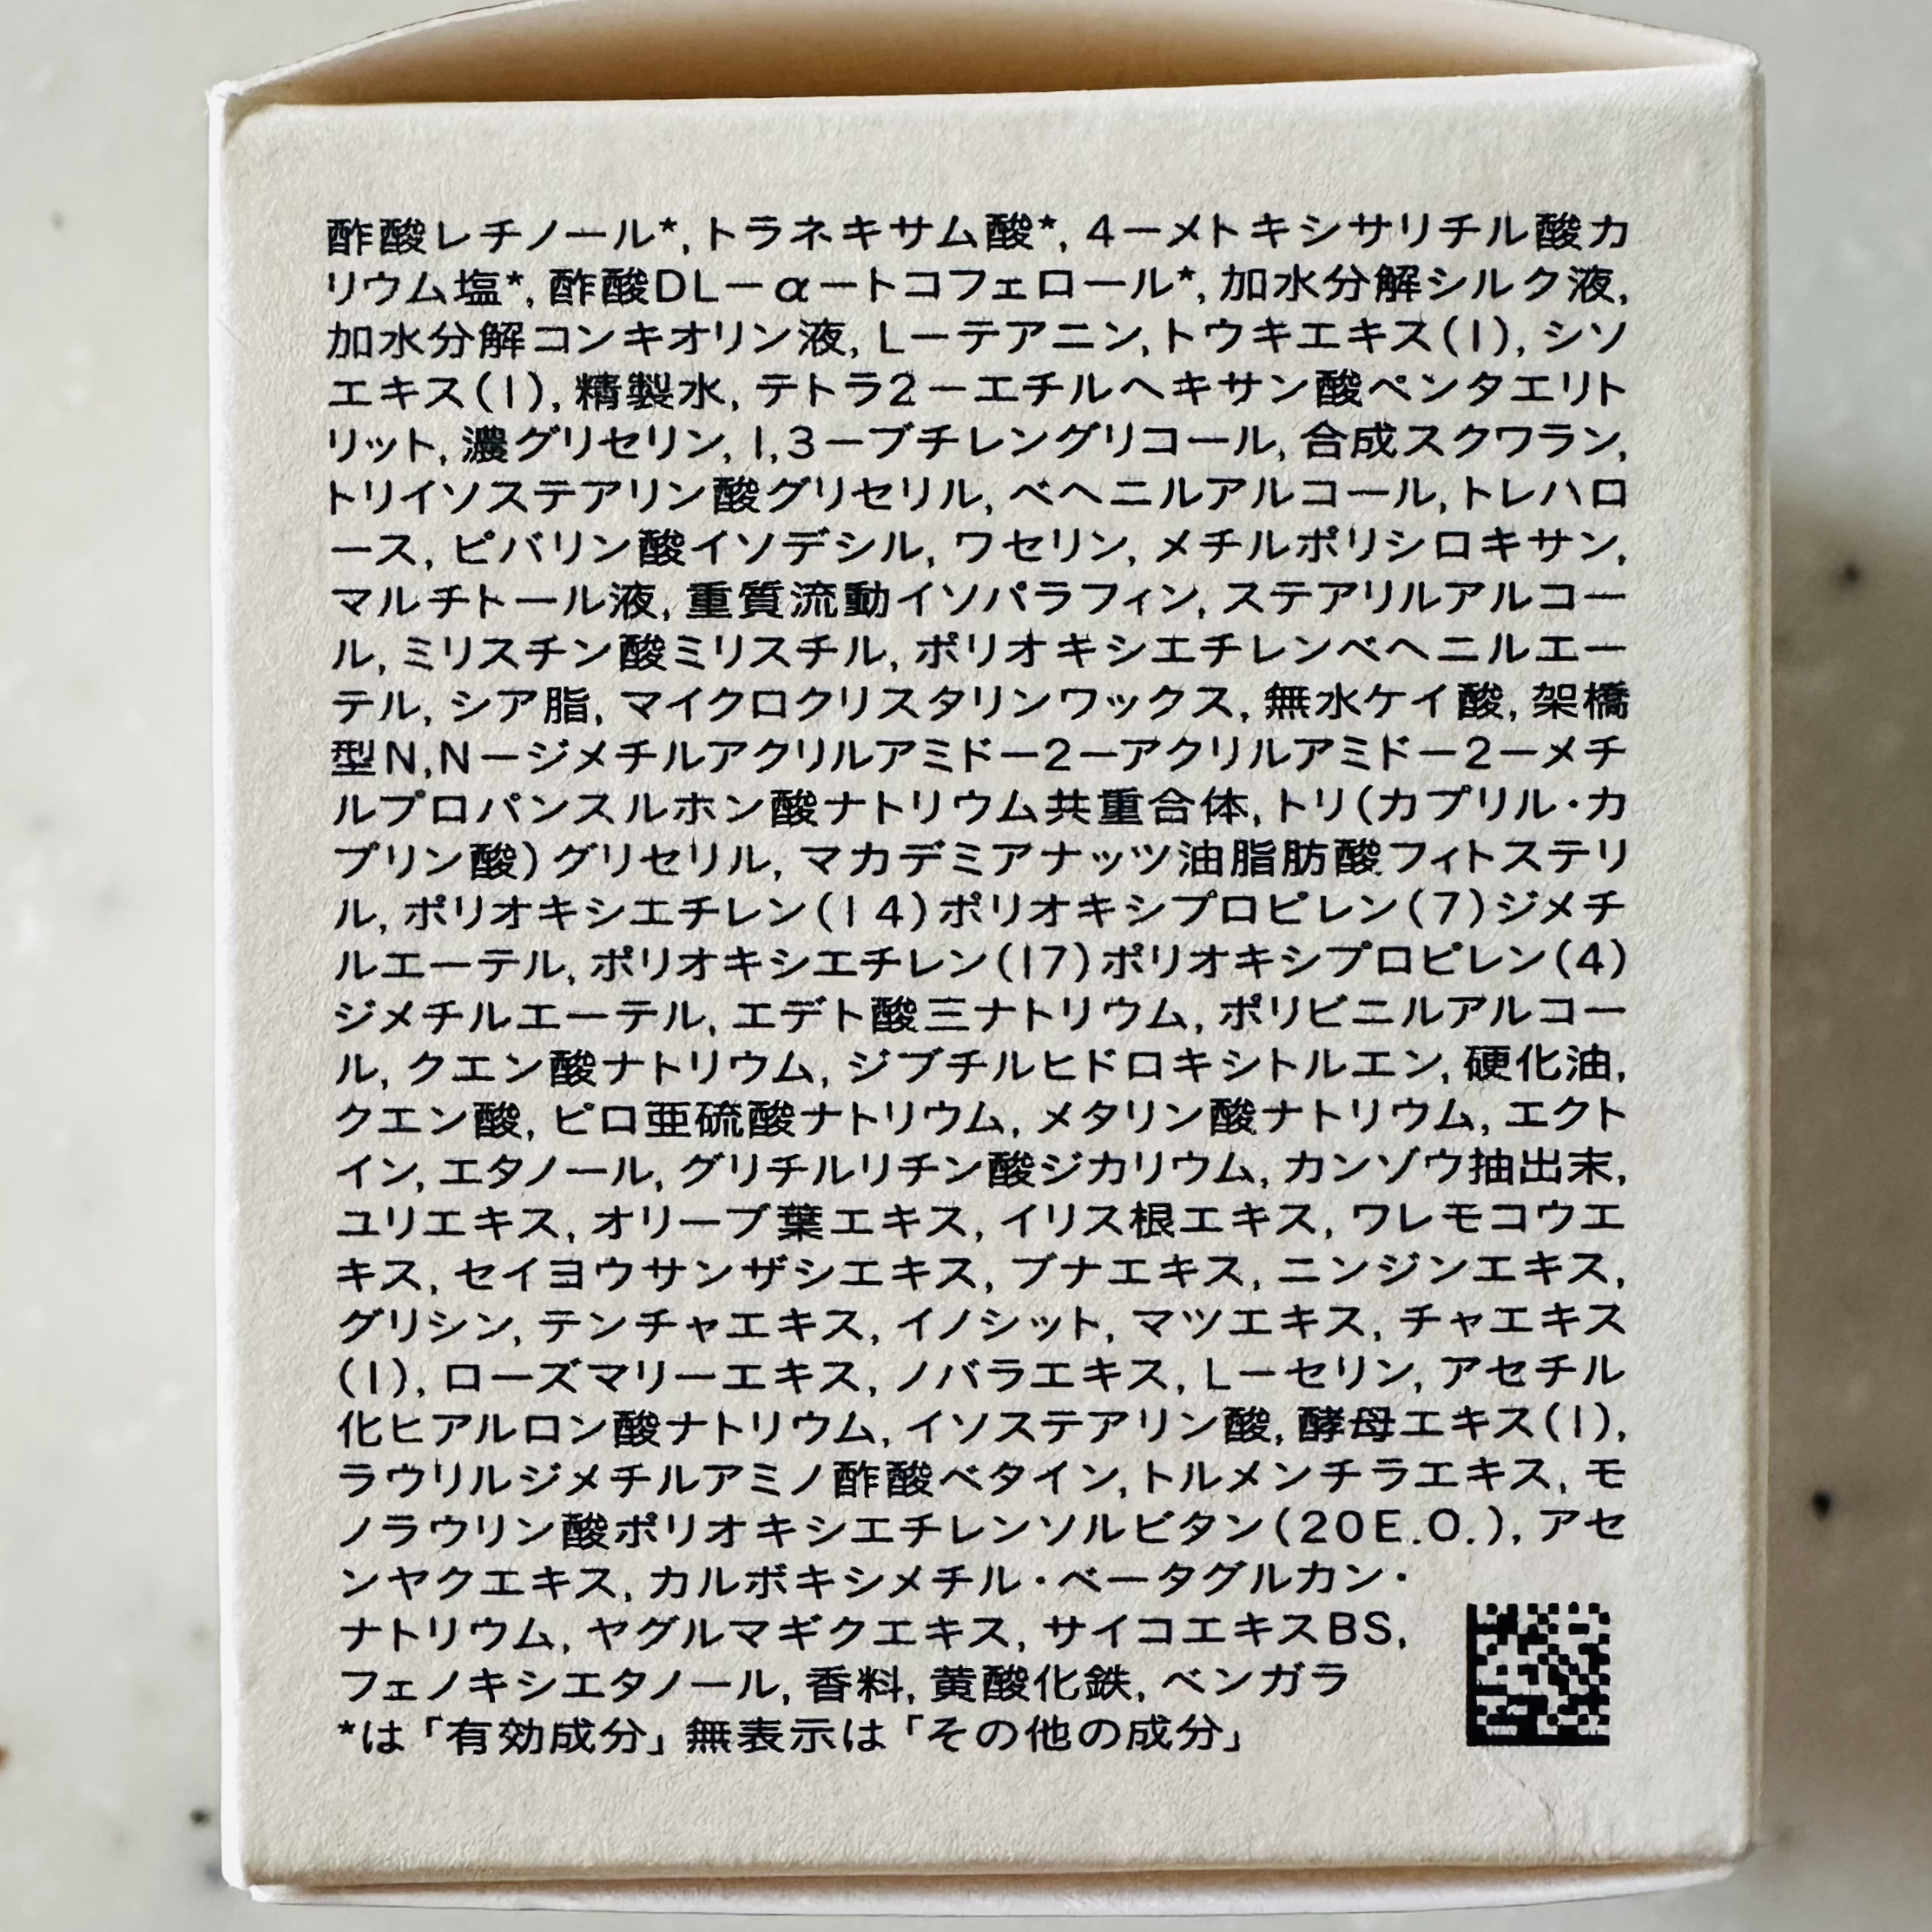 酢酸レチノール*, トラネキサム酸*, 4ーメトキシサリチル酸カ
リウム塩*, 酢酸DLーαートコフェロール*, 加水分解シルク液,
加水分解コンキオリン液, Lーテアニン, トウキエキス(1), シソ
エキス(1), 精製水, テトラ2ーエチルヘキサン酸ペンタエリト
リット, 濃グリセリン, 1,3ーブチレングリコール, 合成スクワラン,
トリイソステアリン酸グリセリル, ベヘニルアルコール, トレハロ
ース, ピバリン酸イソデシル, ワセリン, メチルポリシロキサン,
マルチトール液, 重質流動イソパラフィン, ステアリルアルコー
ル, ミリスチン酸ミリスチル, ポリオキシエチレンベヘニルエー
テル, シア脂, マイクロクリスタリンワックス, 無水ケイ酸, 架橋
型N,Nージメチルアクリルアミドー2ーアクリルアミドー2ーメチ
ルプロパンスルホン酸ナトリウム共重合体, トリ(カプリル・カ
プリン酸)グリセリル, マカデミアナッツ油脂肪酸フィトステリ
ル, ポリオキシエチレン(14)ポリオキシプロピレン(7)ジメチ
ルエーテル, ポリオキシエチレン(17)ポリオキシプロピレン(4)
ジメチルエーテル, エデト酸三ナトリウム, ポリビニルアルコー
ル, クエン酸ナトリウム, ジブチルヒドロキシトルエン, 硬化油,
クエン酸, ピロ亜硫酸ナトリウム, メタリン酸ナトリウム, エクト
イン, エタノール, グリチルリチン酸ジカリウム, カンゾウ抽出末,
ユリエキス, オリーブ葉エキス, イリス根エキス, ワレモコウエ
キス, セイヨウサンザシエキス, ブナエキス, ニンジンエキス,
グリシン, テンチャエキス, イノシット, マツエキス, チャエキス
(1), ローズマリーエキス, ノバラエキス, Lーセリン, アセチル
化ヒアルロン酸ナトリウム, イソステアリン酸, 酵母エキス(1),
ラウリルジメチルアミノ酢酸ベタイン, トルメンチラエキス, モ
ノラウリン酸ポリオキシエチレンソルビタン(20E.O.), アセ
ンヤクエキス, カルボキシメチル・ベータグルカン・
ナトリウム, ヤグルマギクエキス, サイコエキスBS,
フェノキシエタノール, 香料, 黄酸化鉄, ベンガラ
*は「有効成分」無表示は「その他の成分」